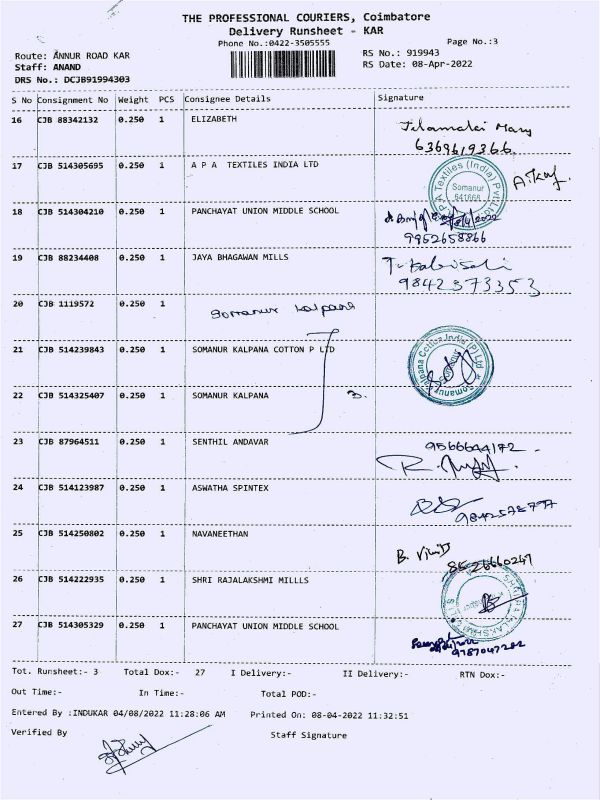 THE PROFESSIONAL COURIERS, Coimbatore
Delivery Runsheet - KAR
Phone No.:0422-3505555
Page No.:3
Route: ANNUR ROAD KAR
RS No.: 919943
Staff: ANAND
RS Date: 08-Apr-2022
DRS No.: DCJB91994303
S No Consignment No Weight PCS Consignee Details Signature
16 CJB 88342132 0.250 1 ELIZABETH
6369619366
17 CJB 514305695 0.250 1 A P A TEXTILES INDIA LTD
A P A Textiles (India) Pvt Ltd
Somanur
541668
18 CJB 514304210 0.250 1 PANCHAYAT UNION MIDDLE SCHOOL
9952658866
19 CJB 88234408 0.250 1 JAYA BHAGAWAN MILLS
9842373353
20 CJB 1119572 0.250 1 Somanur kalpana
21 CJB 514239843 0.250 1 SOMANUR KALPANA COTTON P LTD
Somanur Kalpana Cotton India (P) Ltd
22 CJB 514325407 0.250 1 SOMANUR KALPANA 3.
23 CJB 87964511 0.250 1 SENTHIL ANDAVAR
9566644172
24 CJB 514123987 0.250 1 ASWATHA SPINTEX
25 CJB 514250802 0.250 1 NAVANEETHAN
8526660247
26 CJB 514222935 0.250 1 SHRI RAJALAKSHMI MILLLS
27 CJB 514305329 0.250 1 PANCHAYAT UNION MIDDLE SCHOOL
9787047282
Tot. Runsheet:- 3 Total Dox:- 27 I Delivery:- II Delivery:- RTN Dox:-
Out Time:- In Time:- Total POD:-
Entered By :INDUKAR 04/08/2022 11:28:06 AM Printed On: 08-04-2022 11:32:51
Verified By Staff Signature